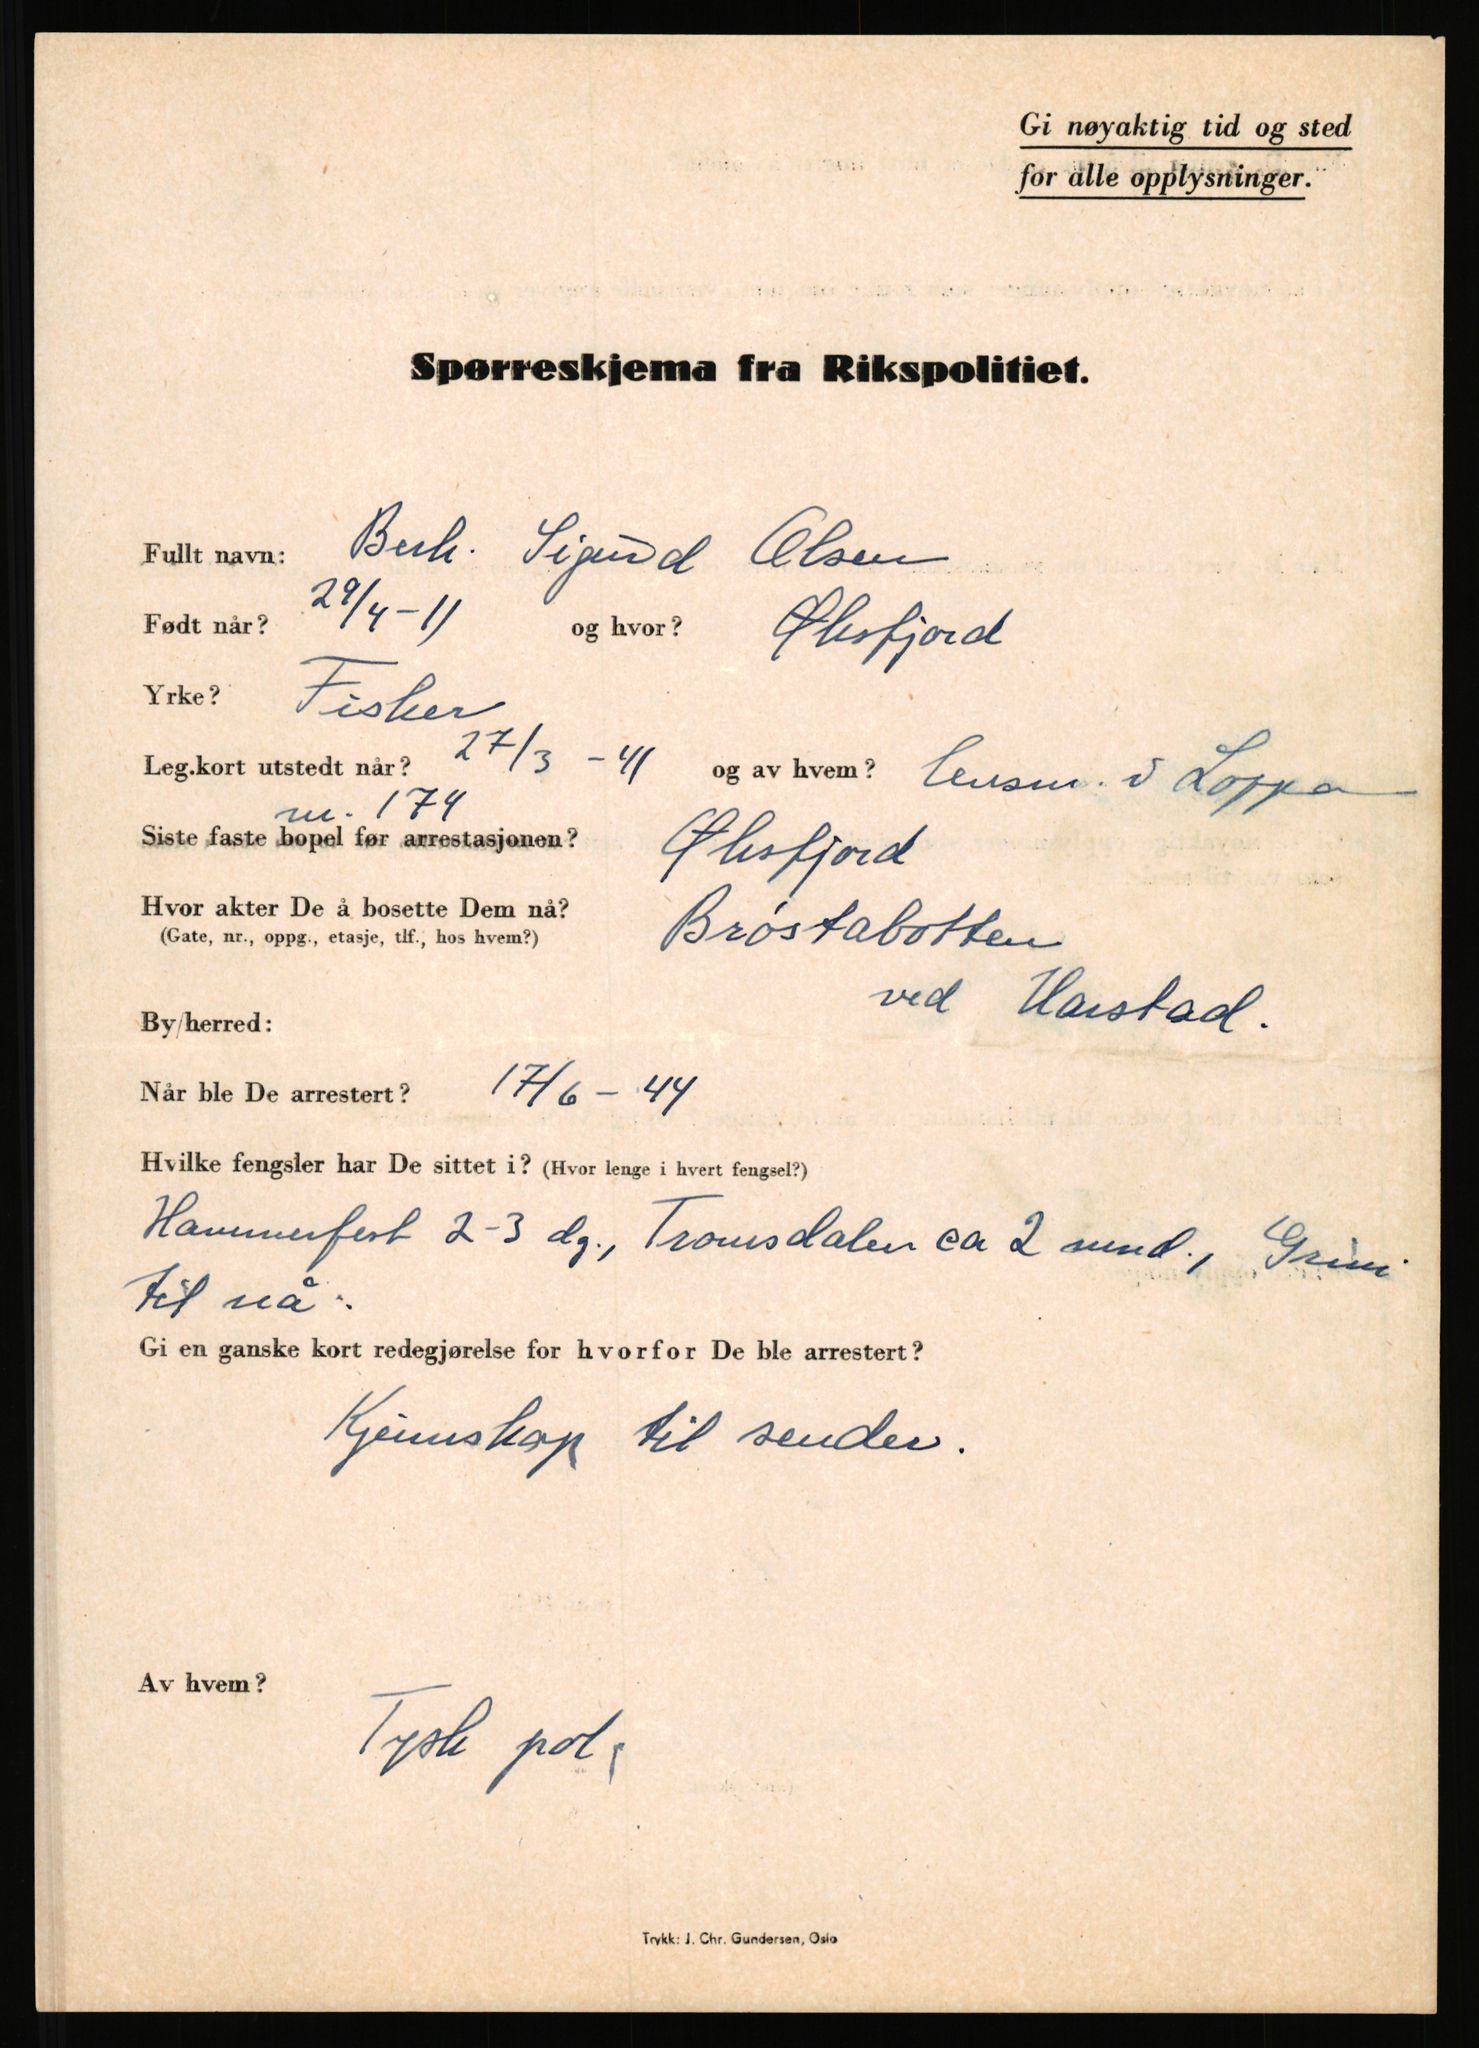 Gi nøyaktig tid og sted
for alle opplysninger.
Spørreskjema fra Rikspolitiet.
Fullt navn: Berh. Sigurd Olsen
Født når? 29/4-11 og hvor? Øksfjord
Yrke? Fisker
Leg.kort utstedt når? 27/3 - 41 og av hvem? lensm. i Loppa
nr. 174
Siste faste bopel før arrestasjonen? Øksfjord
Hvor akter De å bosette Dem nå? Brøstabotten
(Gate, nr., oppg., etasje, tlf., hos hvem?)
ved Harstad.
By/herred:
Når ble De arrestert? 17/6 - 44
Hvilke fengsler har De sittet i? (Hvor lenge i hvert fengsel?)
Hammerfest 2-3 dg., Tromsdalen ca 2 mnd., Grini
til nå.
Gi en ganske kort redegjørelse for hvorfor De ble arrestert?
Kjennskap til sender.
Av hvem?
Tysk pol.
Trykk: J. Chr. Gundersen, Oslo